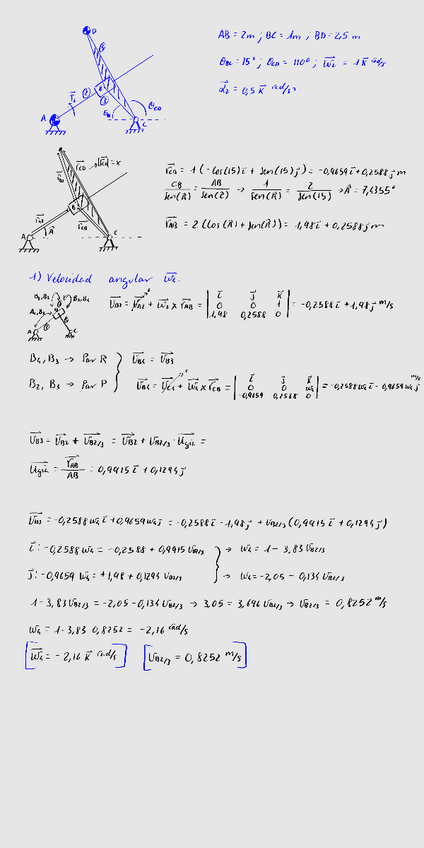 AB = 2m ; BC = 1m ; BD = 2,5 m
θBC = 15° ; θCD = 110° ; ω2 = 1 k rad/s
α2 = 0,5 k rad/s²
D
A
C
θCD
rCB = 1 (-Cos(15) i + Sen(15) j) = -0,9659 i + 0,2588 j m
CB / Sen(A) = AB / Sen(15) → 1 / Sen(A) = 2 / Sen(15) → A = 7,4355°
rAB = 2 (Cos(A) + Sen(A)) = 1,98 i + 0,2588 j m
A
B
C
1) Velocidad angular ω4.
vB2 = vA2 + ω2 x rAB = | i j k | 0 0 1 | 1,98 0,2588 0 | = -0,2588 i + 1,98 j m/s
B4, B3 → Par R } vB4 = vB3
B2, B3 → Par P } vB4 = vC4 + ω4 x rCB = | i j k | 0 0 ω4 | -0,9659 0,2588 0 | = -0,2588 ω4 i - 0,9659 ω4 j m/s
vB3 = vB2 + vB2/3 = vB2 + vB2/3 · ugic =
ugic = rAB / AB = 0,9915 i + 0,1294 j
vB3 = -0,2588 ω4 i + 0,9659 ω4 j = -0,2588 i - 1,98 j + vB2/3 (0,9915 i + 0,1294 j)
i: -0,2588 ω4 = -0,2588 + 0,9915 vB2/3 } → ω4 = 1 - 3,83 vB2/3
j: -0,9659 ω4 = +1,98 + 0,1294 vB2/3 } → ω4 = -2,05 - 0,134 vB2/3
1 - 3,83 vB2/3 = -2,05 - 0,134 vB2/3 → 3,05 = 3,696 vB2/3 → vB2/3 = 0,8252 m/s
ω4 = 1 - 3,83 0,8252 = -2,16 rad/s
[ω4 = -2,16 k rad/s] [vB2/3 = 0,8252 m/s]